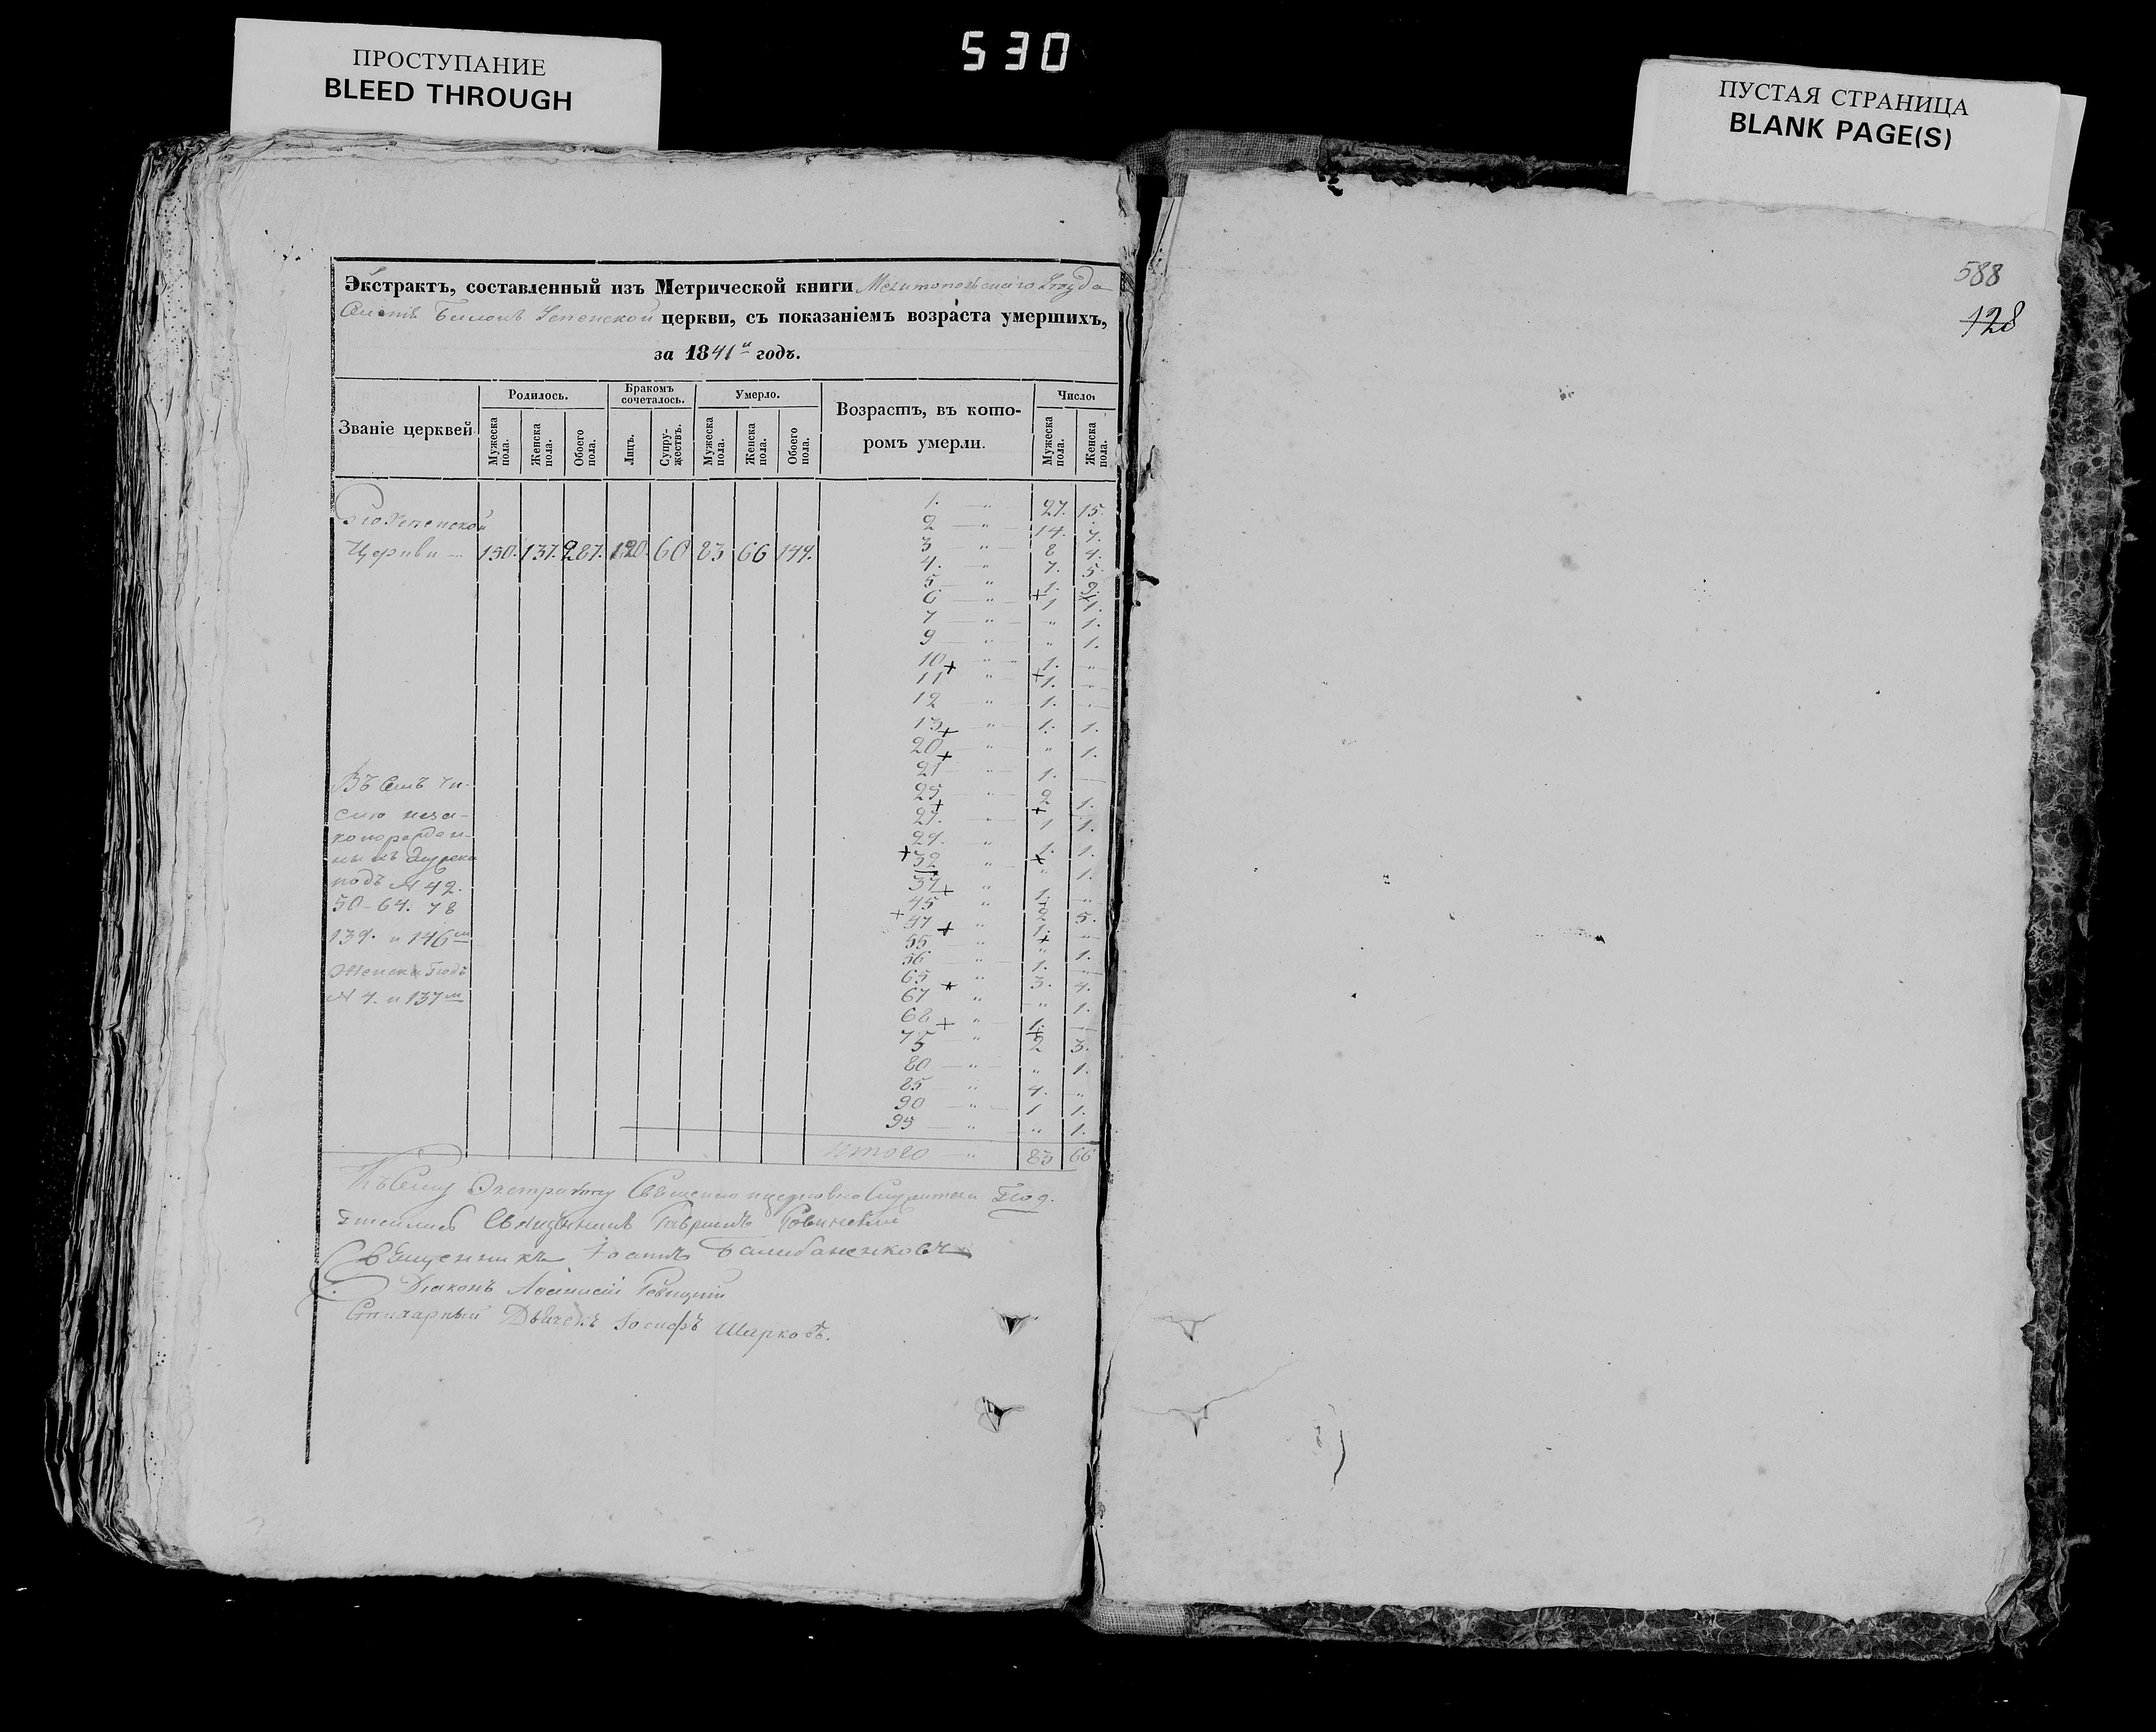 530
ПРОСТУПАНИЕ
BLEED THROUGH
ПУСТАЯ СТРАНИЦА
BLANK PAGE(S)
588
128
Экстрактъ, составленный изъ Метрической книги Мелитопольскаго Уезда
Успенской церкви, съ показаніемъ возраста умершихъ,
за 1841й годъ.
Званіе церквей
Родилось.
Бракомъ сочеталось.
Умерло.
Возрастъ, въ которомъ умерли.
Число
Мужеска пола.
Женска пола.
Обоего пола.
Лицъ.
Супружествъ.
Мужеска пола.
Женска пола.
Обоего пола.
Мужеска пола.
Женска пола.
Успенской
Церкви — 150. 137. 287. 120. 60 83 66 149.
1. — " 27. 15.
2 — " 14. 7.
3 — " 8 4.
4. — " 7. 5.
5 — " 1.
6 — " 1 1.
7 — " " 1.
9 — " " 1.
10 " 1. "
11 " 1. "
12 " 1. "
13 " 1. 1.
20 " " 1.
21 — " 1. —
25 — " 2 1.
27. " 1 1.
29. " 1. 1.
32 " " 1.
37 " 1. "
45 " 2 5.
47 " 1. "
55 — " " 1.
56 — " 1. "
65 " 3. 4.
67 " " 1.
68 " 1. —
75 " 2 3.
80 — " " 1.
85 — " 4. "
90 — " 1 1.
95 — " " 1.
Итого — " 83 66
Въ семъ чи-
слѣ неза-
конорожден-
ныхъ Мужеска
подъ № 42.
50-64. 78
139. и 146м
Женска подъ
№ 4. и 137м
Къ сему Экстракту Священно церковно Служители Под.
Священникъ Гавриилъ
Священникъ Іоаннъ
Діаконъ Афанасій
Дьячекъ Іосифъ Шарковъ.